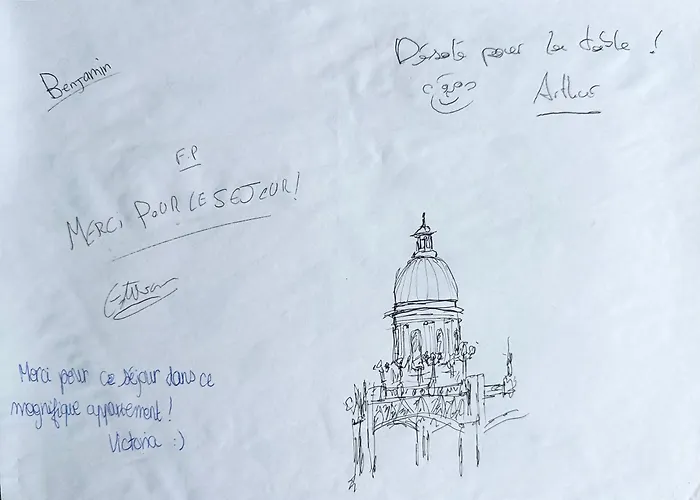 Benjamin
Désolé pour la table !
Arthur
F.P
MERCI POUR LE SEJOUR !
Merci pour ce séjour dans ce
magnifique appartement !
Victoria :)